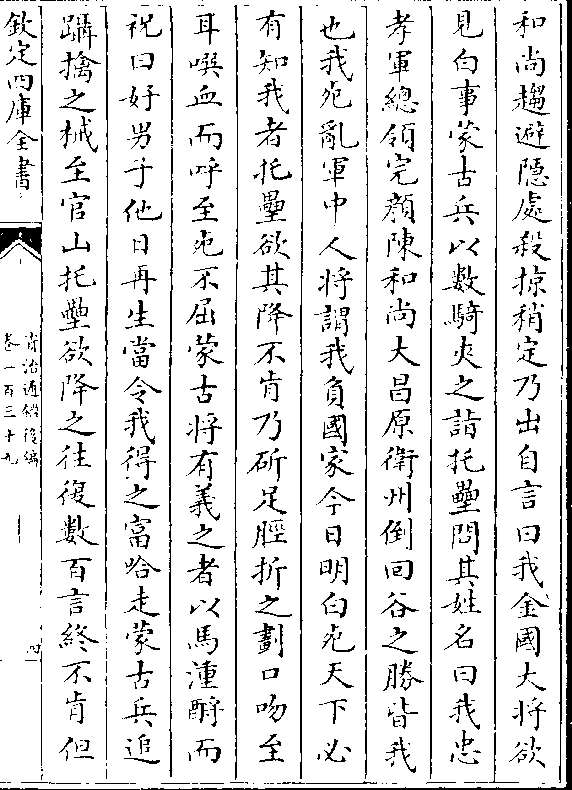 和尚趨避隱處殺掠稍定乃出自言曰我金國大將欲
見白事蒙古兵以數騎夾之詣托壘問其姓名曰我忠
孝軍總領完顔陳和尚大昌原衛州倒回谷之勝皆我
也我死亂軍中人將謂我負國家今日明白死天下必
有知我者托壘欲其降不肯乃斫足脛折之劃口吻至
耳噀血而呼至死不屈蒙古將有義之者以馬湩酹而
祝曰好男子他日再生當令我得之富哈走蒙古兵追
躡擒之械至官山托壘欲降之往復數百言終不肯但
欽定四庫全書
資治通鑑後編
卷一百三十九
四